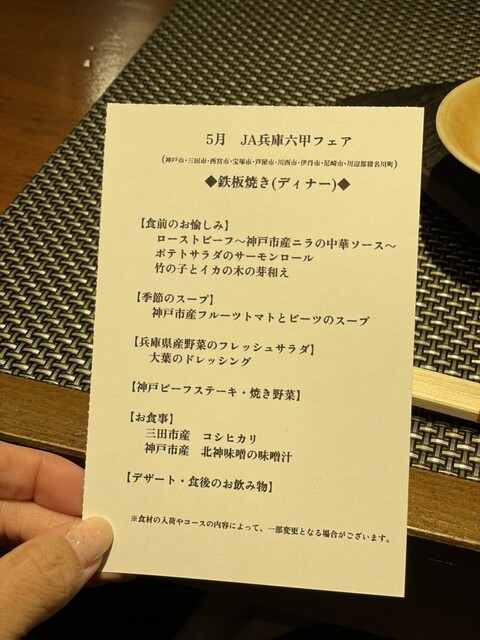 5月 JA兵庫六甲フェア
(神戸市・三田市・西宮市・宝塚市・芦屋市・川西市・伊丹市・尼崎市・川辺郡猪名川町)
◆鉄板焼き(ディナー)◆
【食前のお愉しみ】
ローストビーフ～神戸市産ニラの中華ソース～
ポテトサラダのサーモンロール
竹の子とイカの木の芽和え
【季節のスープ】
神戸市産フルーツトマトとビーツのスープ
【兵庫県産野菜のフレッシュサラダ】
大葉のドレッシング
【神戸ビーフステーキ・焼き野菜】
【お食事】
三田市産 コシヒカリ
神戸市産 北神味噌の味噌汁
【デザート・食後のお飲み物】
※食材の入荷やコースの内容によって、一部変更となる場合がございます。